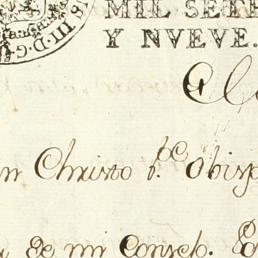 S III D. G.
MIL SETE
Y NVEVE.
en Christo P.ᵉ Obisp
de mi Consejo.